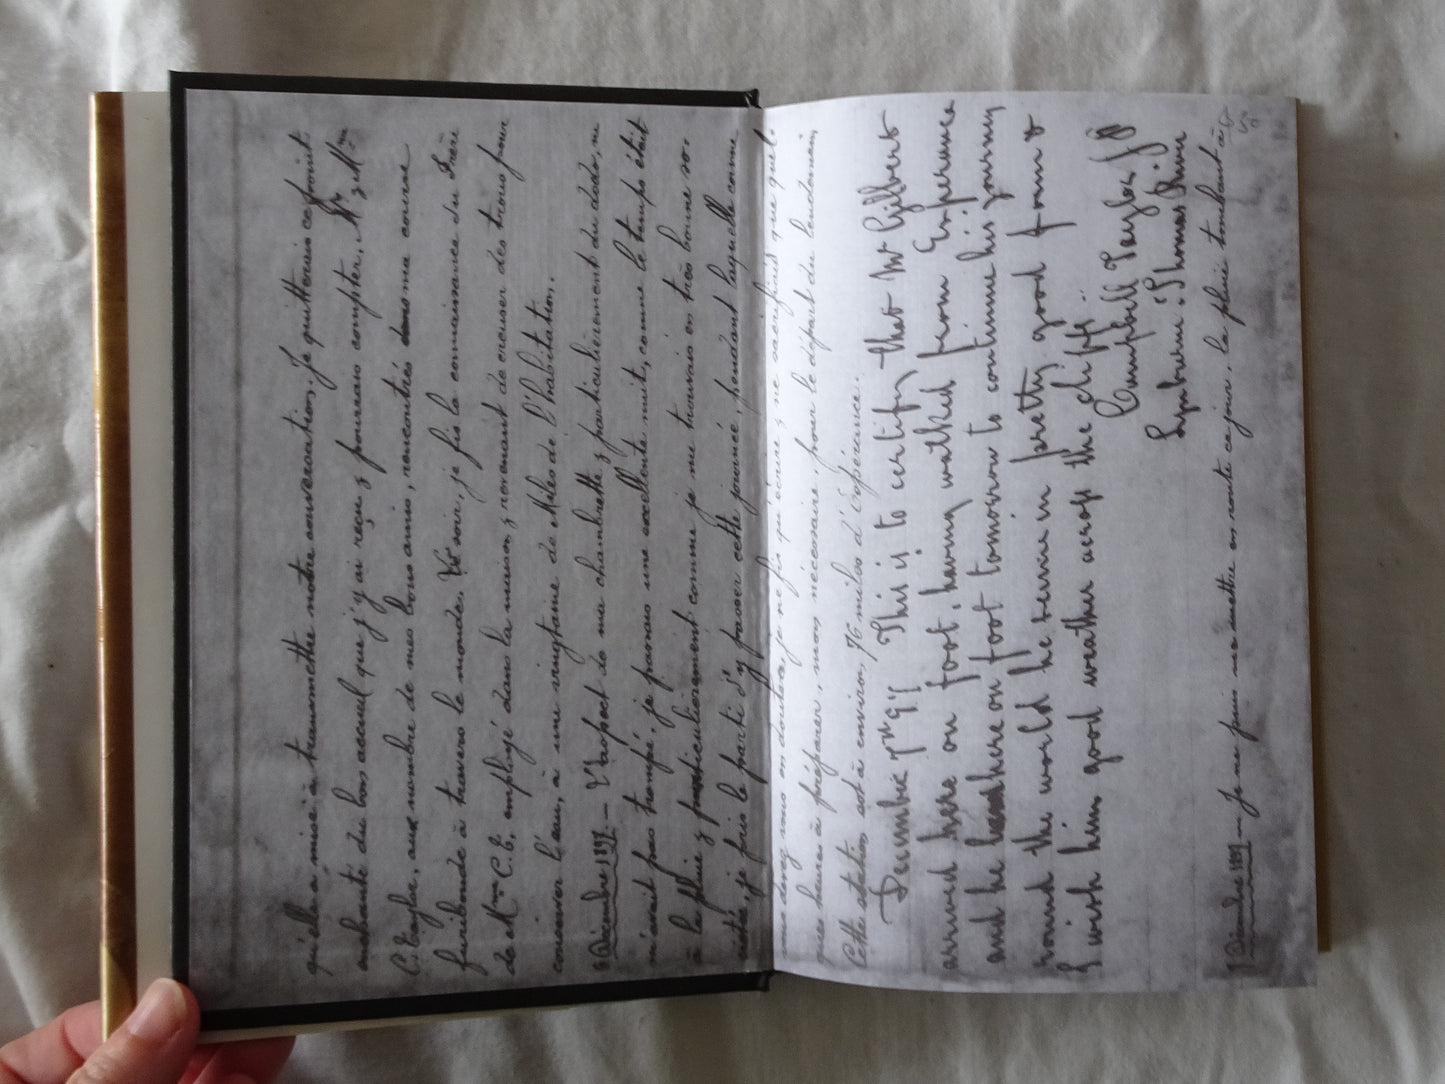 qu'elle a mise à transmettre notre conversation. Je quitterais ce point
enchanté du bon accueil que j'y ai reçu & pourrais compter, Mr & Mme
C. Taylor, au nombre de mes bons amis, rencontrés dans ma course
furibonde à travers le monde. Ce soir, je fis la connaissance du Frère
de Mme C. E. employé dans la maison, & revenant de creuser des trous pour
conserver l'eau, à une vingtaine de Miles de l'habitation.
6 Décembre 1897. — L'aspect de ma chambrette, & particulièrement du dodo, ne
m'avait pas trompé, je passais une excellente nuit, comme le temps était
à la pluie & particulièrement comme je me trouvais en très bonne so-
ciété, je pris le parti d'y passer cette journée, pendant laquelle comme
vous devez vous en douter, je ne fis qu'écrire, & ne sacrifiait que quel-
ques heures à préparer, mon nécessaire, pour le départ du lendemain
Cette station est à environ, 76 miles d'Espérance.
December 7th 97 This is to certify that Mr Gilbert
arrived here on foot, having walked from Esperance
and he leaves here on foot tomorrow to continue his journey
round the world He seems in pretty good form &
I wish him good weather across the cliffs"
Campbell Taylor JP
Lynburn. Thomas River
7 Décembre 1897 — Je ne puis me mettre en route ce jour, la pluie tombant à